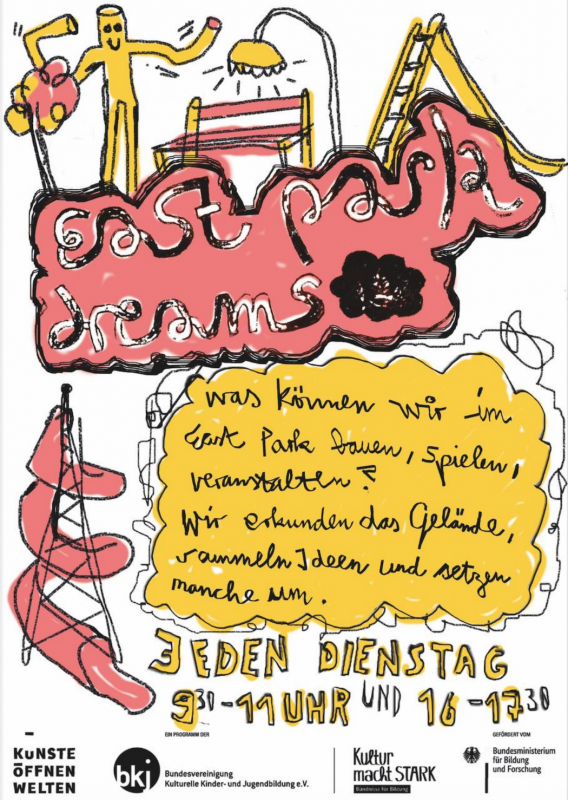 East park
dreams
was können wir im
East Park bauen, spielen,
veranstalten?
Wir erkunden das Gelände,
sammeln Ideen und setzen
manche um.
JEDEN DIENSTAG
9³⁰-11 UHR UND 16-17³⁰
EIN PROGRAMM DER
GEFÖRDERT VOM
KÜNSTE
ÖFFNEN
WELTEN
bkj
Bundesvereinigung
Kulturelle Kinder- und Jugendbildung e.V.
Kultur
macht STARK
Bündnisse für Bildung
Bundesministerium
für Bildung
und Forschung